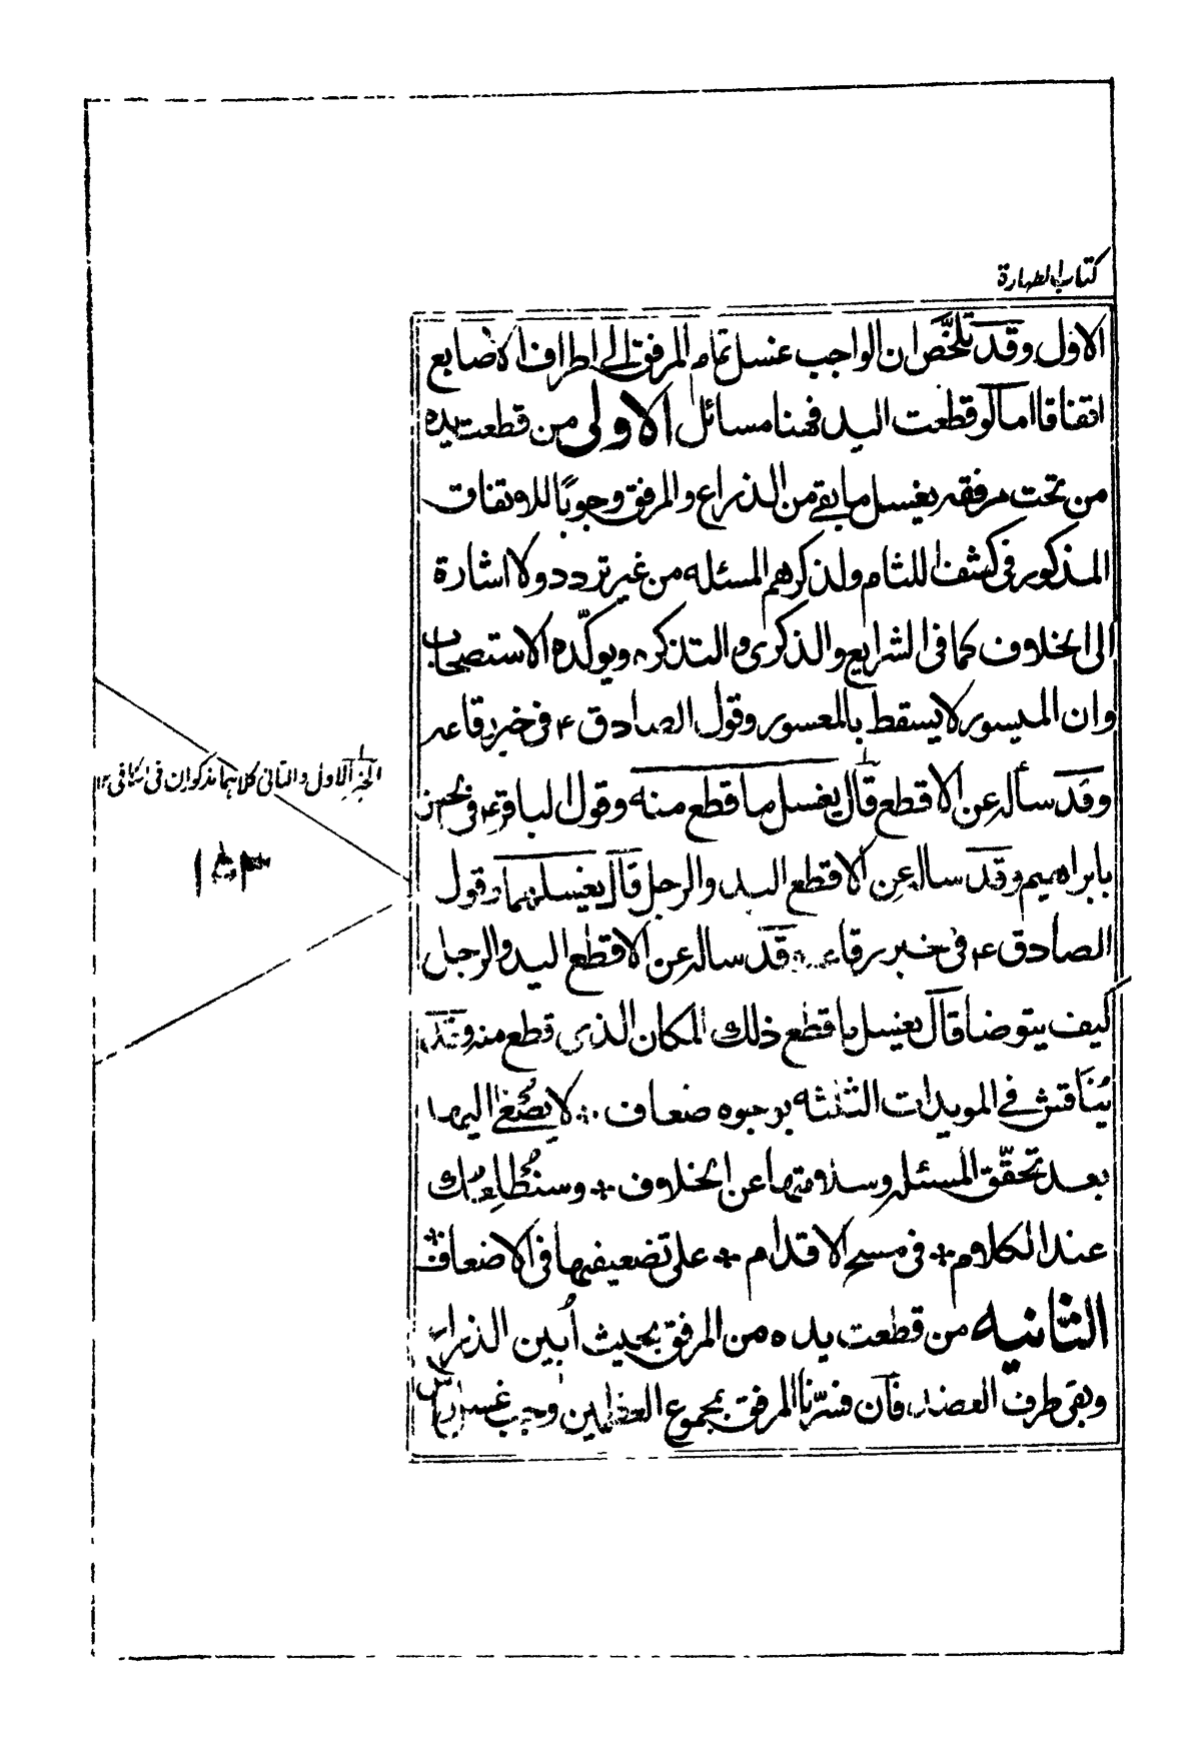 كتاب الطهارة
الاول وقد تلخّص ان الواجب غسل تمام المرفق الى اطراف الاصابع
اتفاقا اما لو قطعت اليد فهنا مسائل الاولى من قطعت يده
من تحت مرفقه يغسل ما بقي من الذراع والمرفق وجوبًا للاتفاق
المذكور في كشف اللثام ولذكرهم المسئله من غير تردد ولا اشارة
الى الخلاف كما في الشرايع والذكرى والتذكره ويوكّده الاستصحاب
وان الميسور لا يسقط بالمعسور وقول الصادق ع في خبر رفاعه
وقد سأله عن الاقطع قال يغسل ما قطع منه وقول الباقر ع في
بابراهيم وقد ساله عن الاقطع اليد والرجل قال يغسلهما وقول
الصادق ع في خبر رفاعه قد ساله عن الاقطع اليد والرجل
كيف يتوضا قال يغسل ما قطع ذلك المكان الذى قطع منه وقد
يُنَاقش في المويدات الثلثه بوجوه ضعاف لا يُصْغى اليها
بعد تحقّق المسئله وسلامتها عن الخلاف وسنُطْلِعُك
عند الكلام في مسح الاقدام على تضعيفها في الاضعاف
الثانيه من قطعت يده من المرفق بحيث أُبين الذراع
وبقى طرف العضد فان فسّرنا المرفق بمجموع العظمين وجب غسل راس
الخبر الاول والثانى كلاهما مذكوران في الكافى ١٢